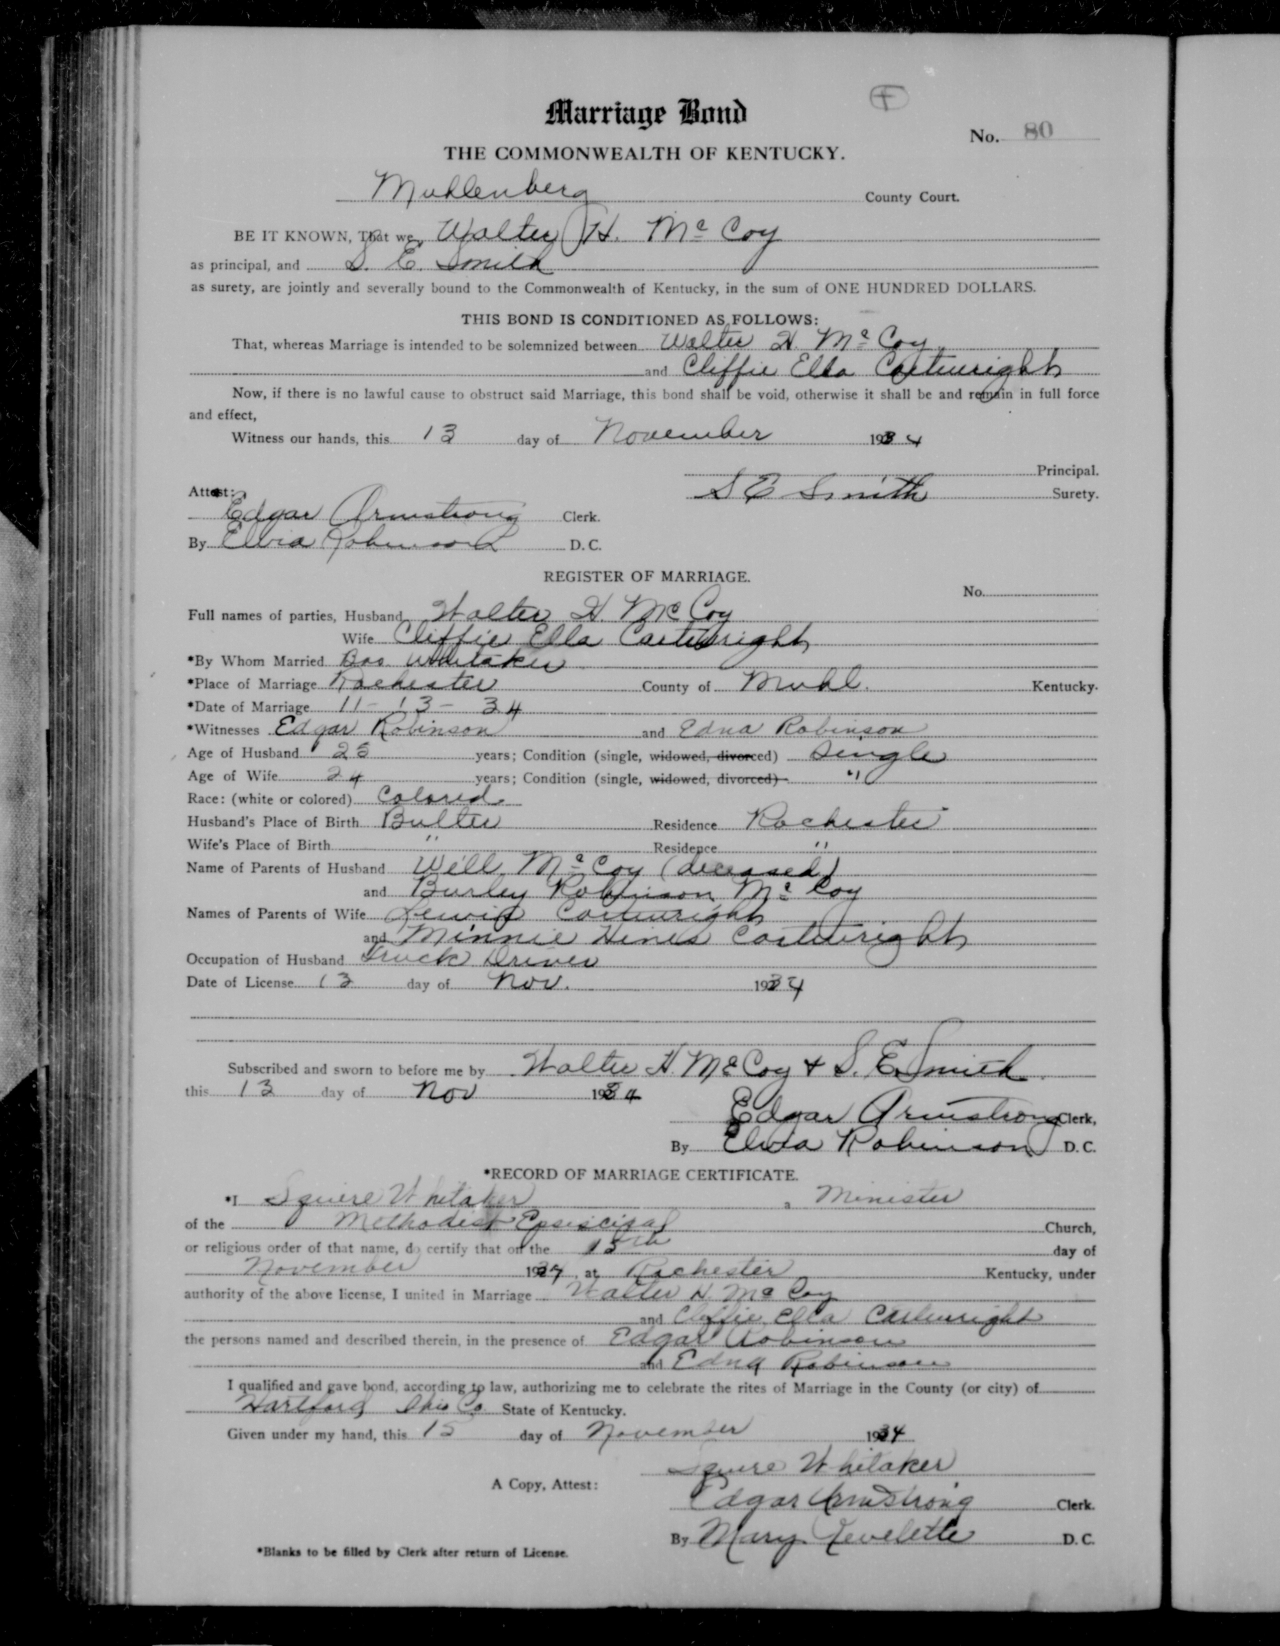 Marriage Bond
No. 80
THE COMMONWEALTH OF KENTUCKY.
Muhlenberg County Court.
BE IT KNOWN, That we, Walter H. McCoy
as principal, and S. E. Smith
as surety, are jointly and severally bound to the Commonwealth of Kentucky, in the sum of ONE HUNDRED DOLLARS.
THIS BOND IS CONDITIONED AS FOLLOWS:
That, whereas Marriage is intended to be solemnized between Walter H. McCoy
and Cliffie Ella Cartwright
Now, if there is no lawful cause to obstruct said Marriage, this bond shall be void, otherwise it shall be and remain in full force
and effect,
Witness our hands, this 13 day of November 1934
Principal.
Attest: S E Smith Surety.
Edgar Armstrong Clerk.
By Elvia Robinson D. C.
REGISTER OF MARRIAGE.
No.
Full names of parties, Husband Walter H. McCoy
Wife Cliffie Ella Cartwright
*By Whom Married Whitaker
*Place of Marriage Rochester County of Muhl. Kentucky.
*Date of Marriage 11-13-34
*Witnesses Edgar Robinson and Edna Robinson
Age of Husband years; Condition (single, widowed, divorced) Single
Age of Wife 24 years; Condition (single, widowed, divorced) "
Race: (white or colored) Colored
Husband's Place of Birth Butler Residence Rochester
Wife's Place of Birth " Residence "
Name of Parents of Husband Will McCoy (deceased)
and Burley Robinson McCoy
Names of Parents of Wife Lewis Cartwright
and Minnie Hines Cartwright
Occupation of Husband Truck Driver
Date of License 13 day of Nov. 1934
Subscribed and sworn to before me by Walter H. McCoy & S. E. Smith
this 13 day of Nov 1934
Edgar Armstrong Clerk,
By Elvia Robinson D. C.
*RECORD OF MARRIAGE CERTIFICATE.
*I Squire Whitaker a Minister
of the Methodist Episcipal Church,
or religious order of that name, do certify that on the day of
November 1934, at Rochester Kentucky, under
authority of the above license, I united in Marriage Walter H. McCoy
and Cliffie Ella Cartwright
the persons named and described therein, in the presence of Edgar Robinson
and Edna Robinson
I qualified and gave bond, according to law, authorizing me to celebrate the rites of Marriage in the County (or city) of
Hartford Ohio Co. State of Kentucky.
Given under my hand, this 15 day of November 1934
Squire Whitaker
A Copy, Attest: Edgar Armstrong Clerk.
By Mary D. C.
*Blanks to be filled by Clerk after return of License.